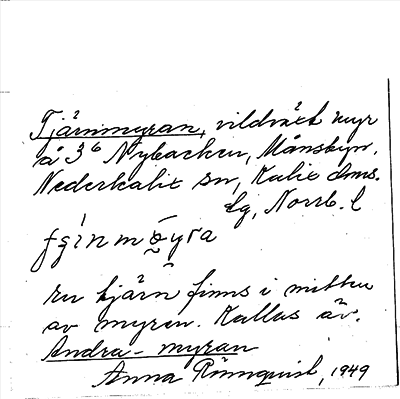 Tjärnmyran, vildvät myr
å 3⁶ Nybacken, Månsbyn,
Nederkalix sn, Kalix dms.
lg, Norrb. l
en tjärn finns i mitten
av myren. Kallas äv.
Andra-myran
Anna Rönnquist, 1949